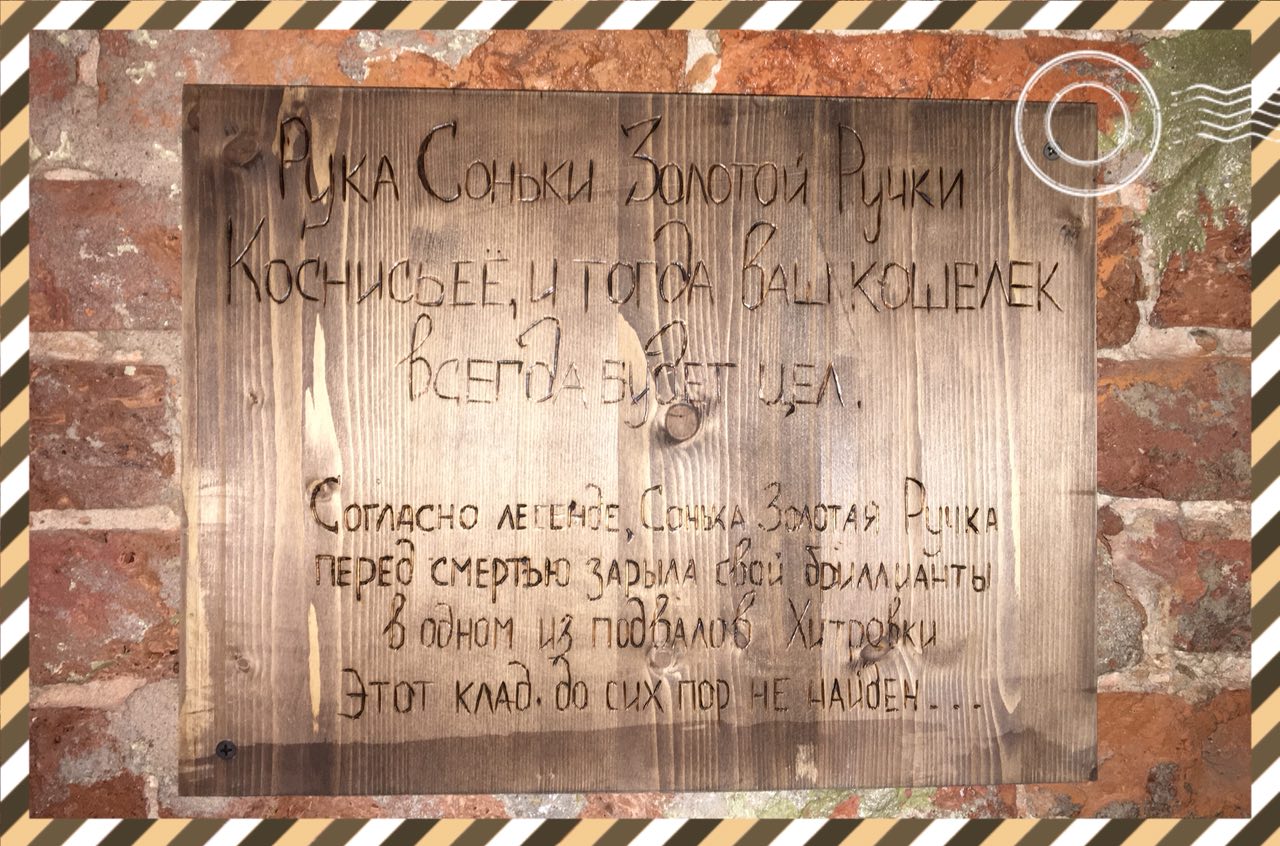 Рука Соньки Золотой Ручки
Коснись её, и тогда ваш кошелек
всегда будет цел.
Согласно легенде, Сонька Золотая Ручка
перед смертью зарыла свои бриллианты
в одном из подвалов Хитровки
Этот клад до сих пор не найден...